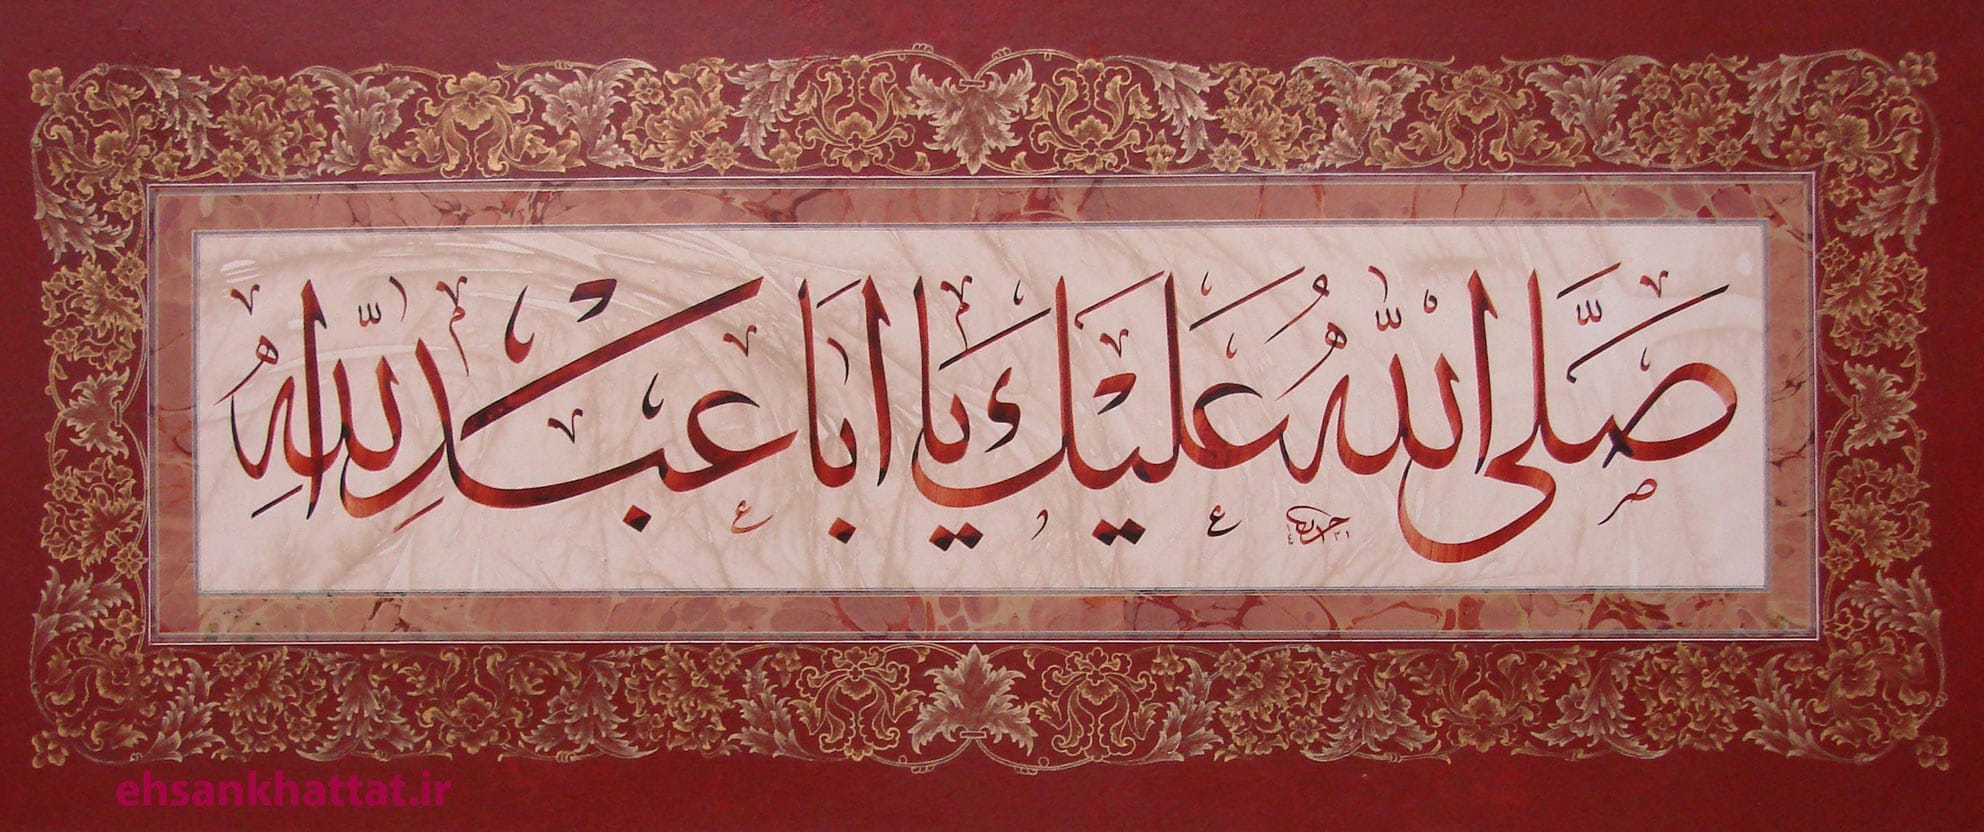 صَلَّى اللّٰهُ عَلَيْكَ يا اَبا عَبْدِ اللّٰهِ
ehsankhattat.ir